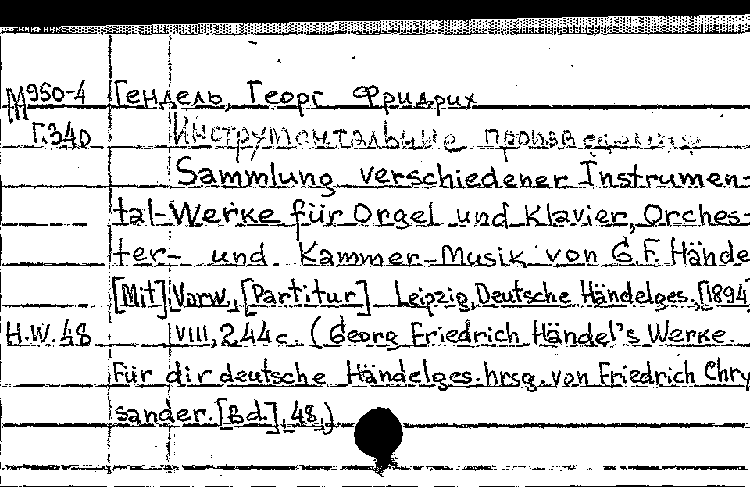 М950-4 Гендель, Георг Фридрих
Г.340 Инструментальные произведения
Sammlung verschiedener Instrumen-
tal-Werke für Orgel und Klavier, Orches-
ter- und Kammer-Musik von G.F. Hände
[Mit] Vorw., [Partitur] Leipzig, Deutsche Händelges., [1894]
H.W. 48 VIII, 244 c. (Georg Friedrich Händel's Werke
Für dir deutsche Händelges. hrsg. von Friedrich Chry
sander. [Bd.], 48,)